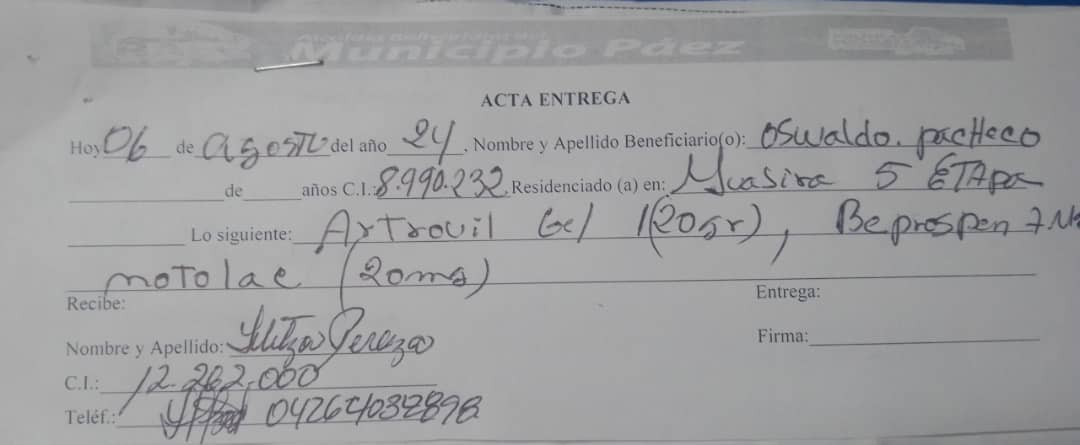 Alcaldía Bolivariana del
Municipio Páez
ACTA ENTREGA
Hoy 06 de agosto del año 24, Nombre y Apellido Beneficiario(o): Oswaldo. pacheco
de años C.I.: 8.990.232, Residenciado (a) en: 5 ETApa
Lo siguiente: Artrovil Gel 1(20gr), Beprospen
motolac (20mg)
Recibe:
Entrega:
Nombre y Apellido: Yelitza Peraza
Firma:
C.I.: 12.262,000
Teléf.: 04264032898